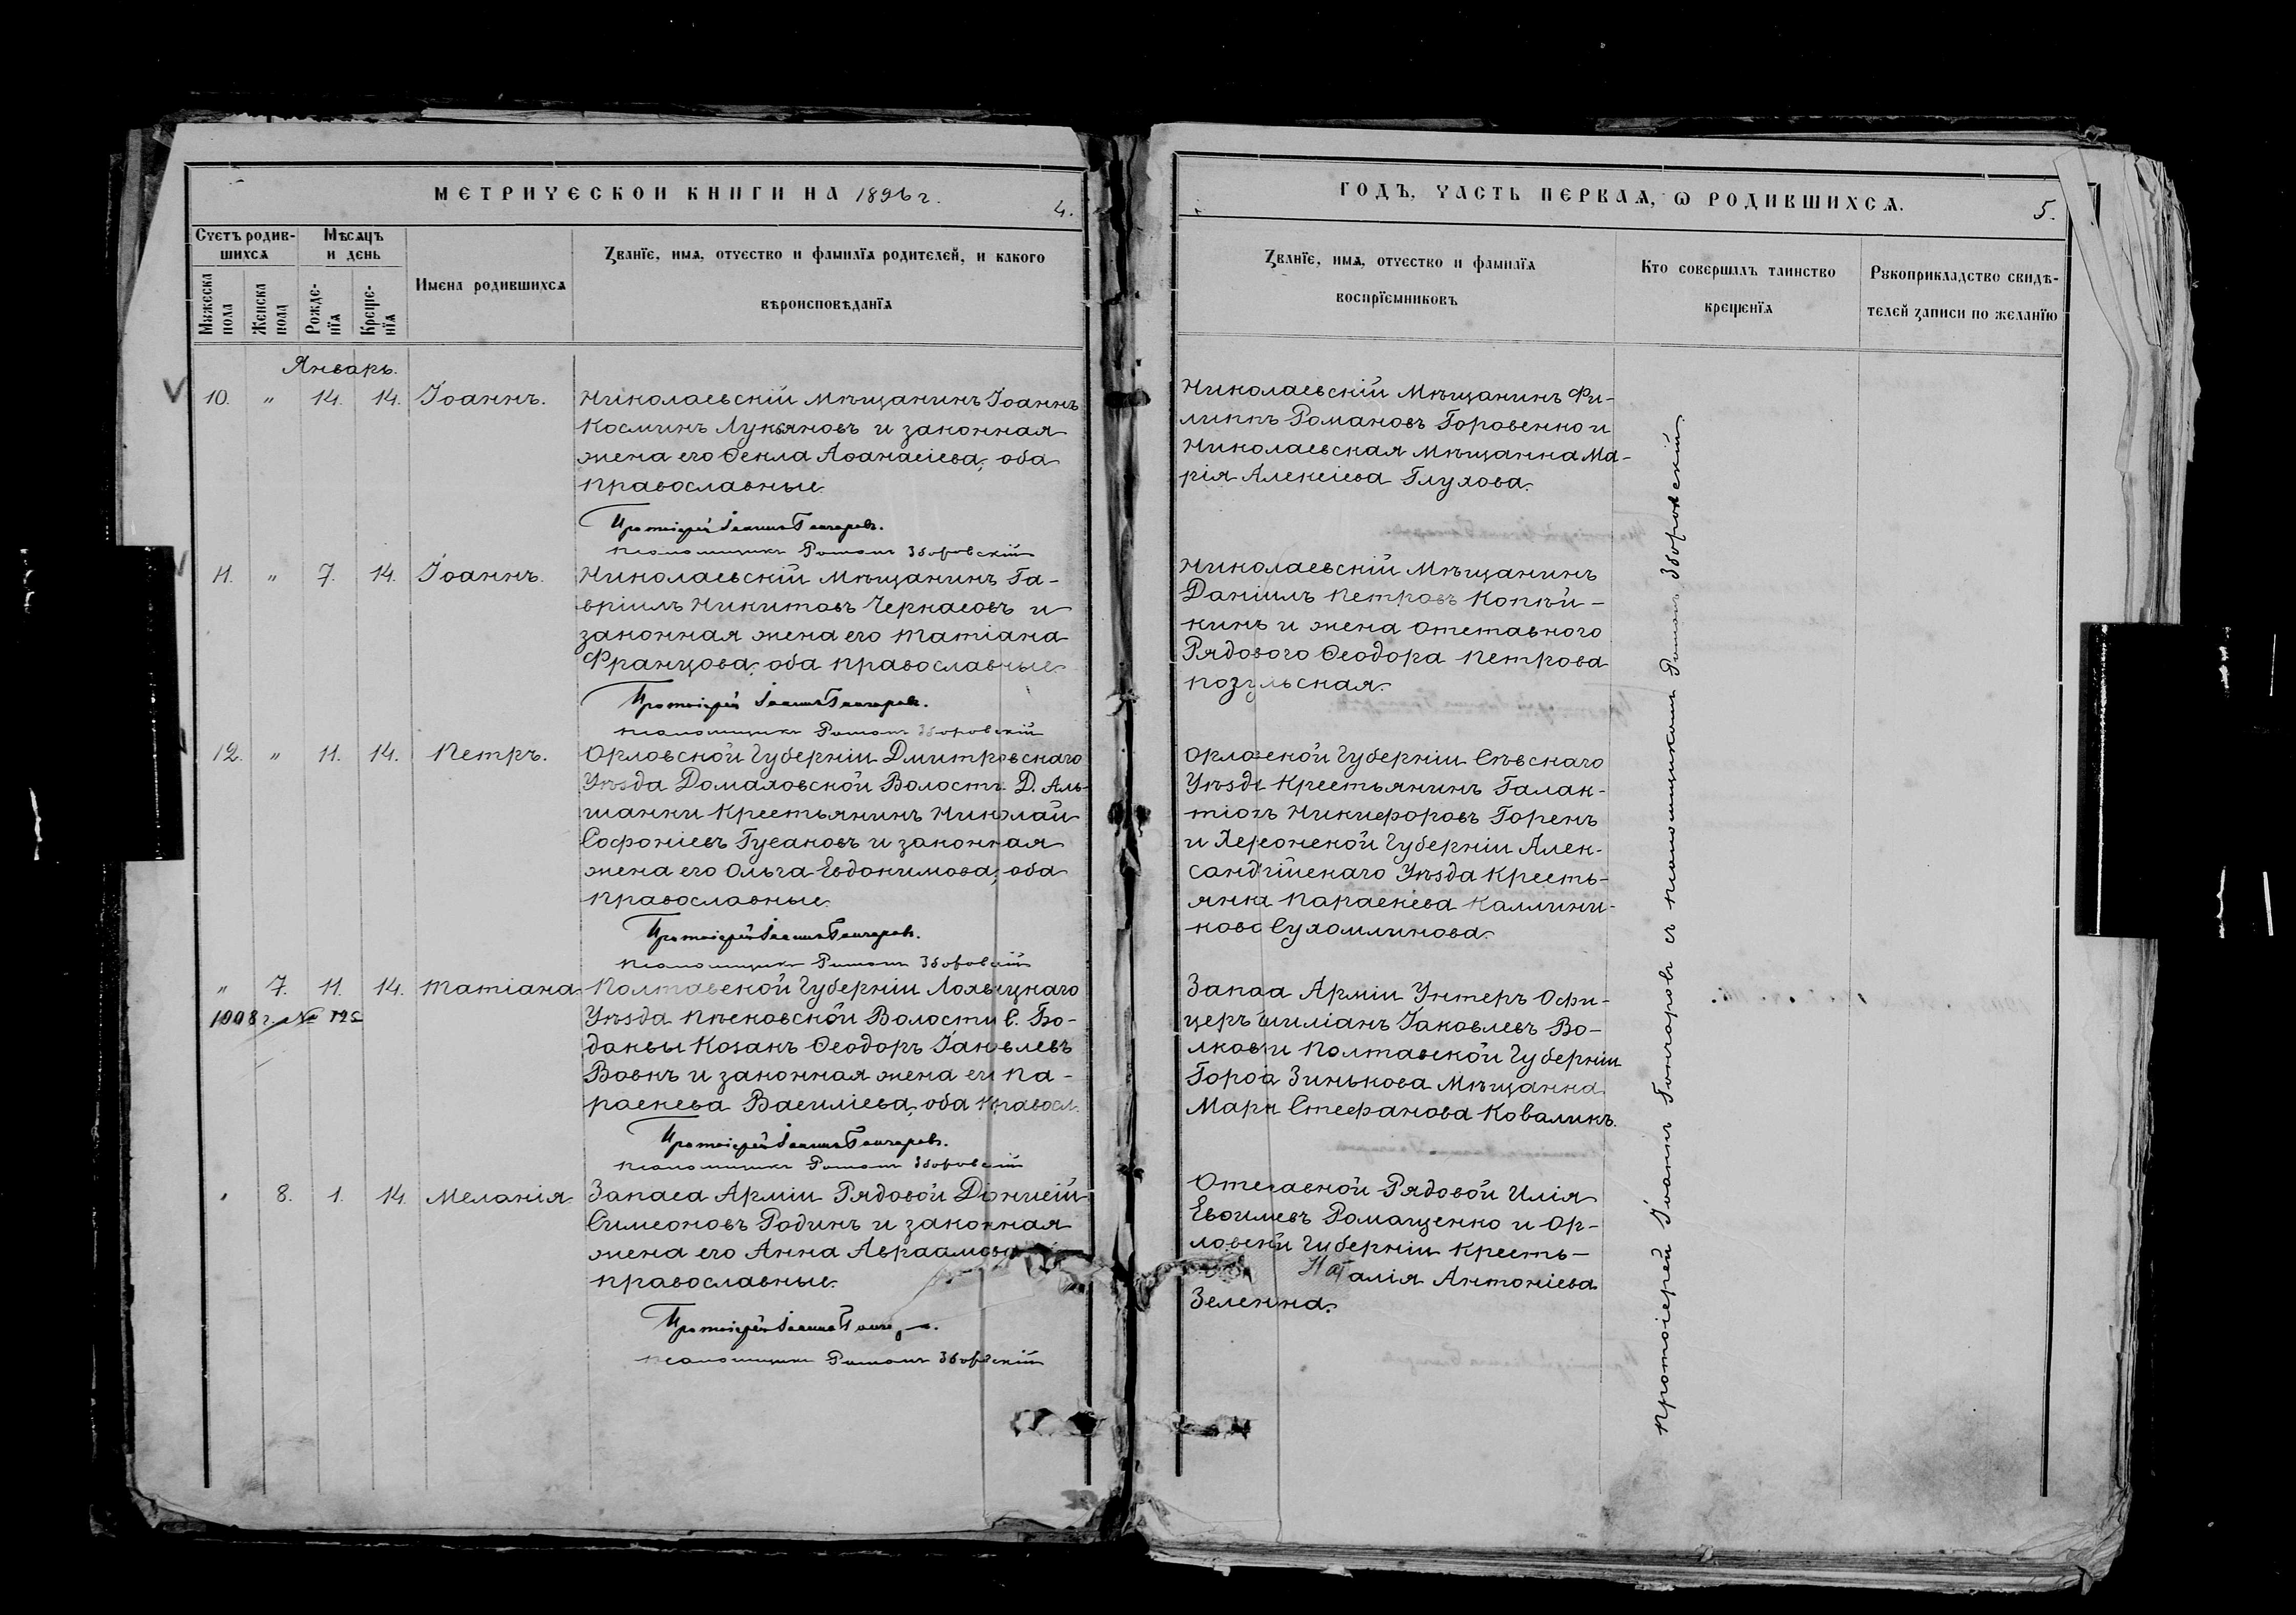 МЕТРИЧЕСКОЙ КНИГИ НА 1896 г.
4.
Счетъ родив-
шихся
Мѣсяцъ
и день
Мужеска
пола
Женска
пола
Рожде-
нія
Креще-
нія
Имена родившихся
Званіе, имя, отчество и фамилія родителей, и какого
вѣроисповѣданія
Январь.
10. " 14. 14. Іоаннъ.
Николаевскій Мѣщанинъ Іоаннъ
Косминъ Лукьяновъ и законная
жена его Ѳекла Аѳанасіева, оба
православные.
Протоіерей Іоаннъ Гончаровъ.
Псаломщикъ Романъ Зборовскій
11. " 7. 14. Іоаннъ.
Николаевскій Мѣщанинъ Га-
вріилъ Никитовъ Черкасовъ и
законная жена его Татіана
Францова, оба православные.
Протоіерей Іоаннъ Гончаровъ.
Псаломщикъ Романъ Зборовскій
12. " 11. 14. Петръ.
Орловской Губерніи Дмитровскаго
Уѣзда Домаховской Волости Д. Аль-
шанки Крестьянинъ Николай
Софоніевъ Гусаковъ и законная
жена его Ольга Евдокимова, оба
православные.
Протоіерей Іоаннъ Гончаровъ.
Псаломщикъ Романъ Зборовскій
" 7. 11. 14. Татіана
1908 г. №
Полтавской Губерніи Лохвицкаго
Уѣзда Пѣсковской Волости С. Бо-
даквы Козакъ Ѳеодоръ Іаковлевъ
Вовкъ и законная жена его Па-
раскева Василіева, оба правосл.
Протоіерей Іоаннъ Гончаровъ.
Псаломщикъ Романъ Зборовскій
" 8. 1. 14. Меланія
Запаса Арміи Рядовой Діонисій
Симеоновъ Родинъ и законная
жена его Анна Авраамова
православные.
Протоіерей Іоаннъ
Псаломщикъ Романъ Зборовскій
ГОДЪ, ЧАСТЬ ПЕРВАЯ, Ѡ РОДИВШИХСЯ.
5.
Званіе, имя, отчество и фамилія
воспріемниковъ
Кто совершалъ таинство
крещенія
Рукоприкладство свидѣ-
телей записи по желанію
Николаевскій Мѣщанинъ Фи-
липпъ Романовъ Горовенко и
Николаевская Мѣщанка Ма-
рія Алексіева Глухова.
Николаевскій Мѣщанинъ
Даніилъ Петровъ Копѣй-
кинъ и жена отставного
Рядового Ѳеодора Петрова
Козульская.
Орловской Губерніи Сѣвскаго
Уѣзда Крестьянинъ Галак-
тіонъ Никифоровъ Горенъ
и Херсонской Губерніи Алек-
сандрійскаго Уѣзда Кресть-
янка Параскева Каллини-
кова Сухомлинова.
Запаса Арміи Унтеръ Офи-
церъ Іаковлевъ Во-
лковъ и Полтавской Губерніи
Города Зинькова Мѣщанка
Марія Стефанова Коваликъ.
Отставной Рядовой Илія
Евѳиміевъ Ромащенко и Ор-
ловской Губерніи Кресть-
Наталія Антоніева
Зеленина.
Протоіерей Іоаннъ Гончаровъ съ псаломщикомъ Романъ Зборовскій.